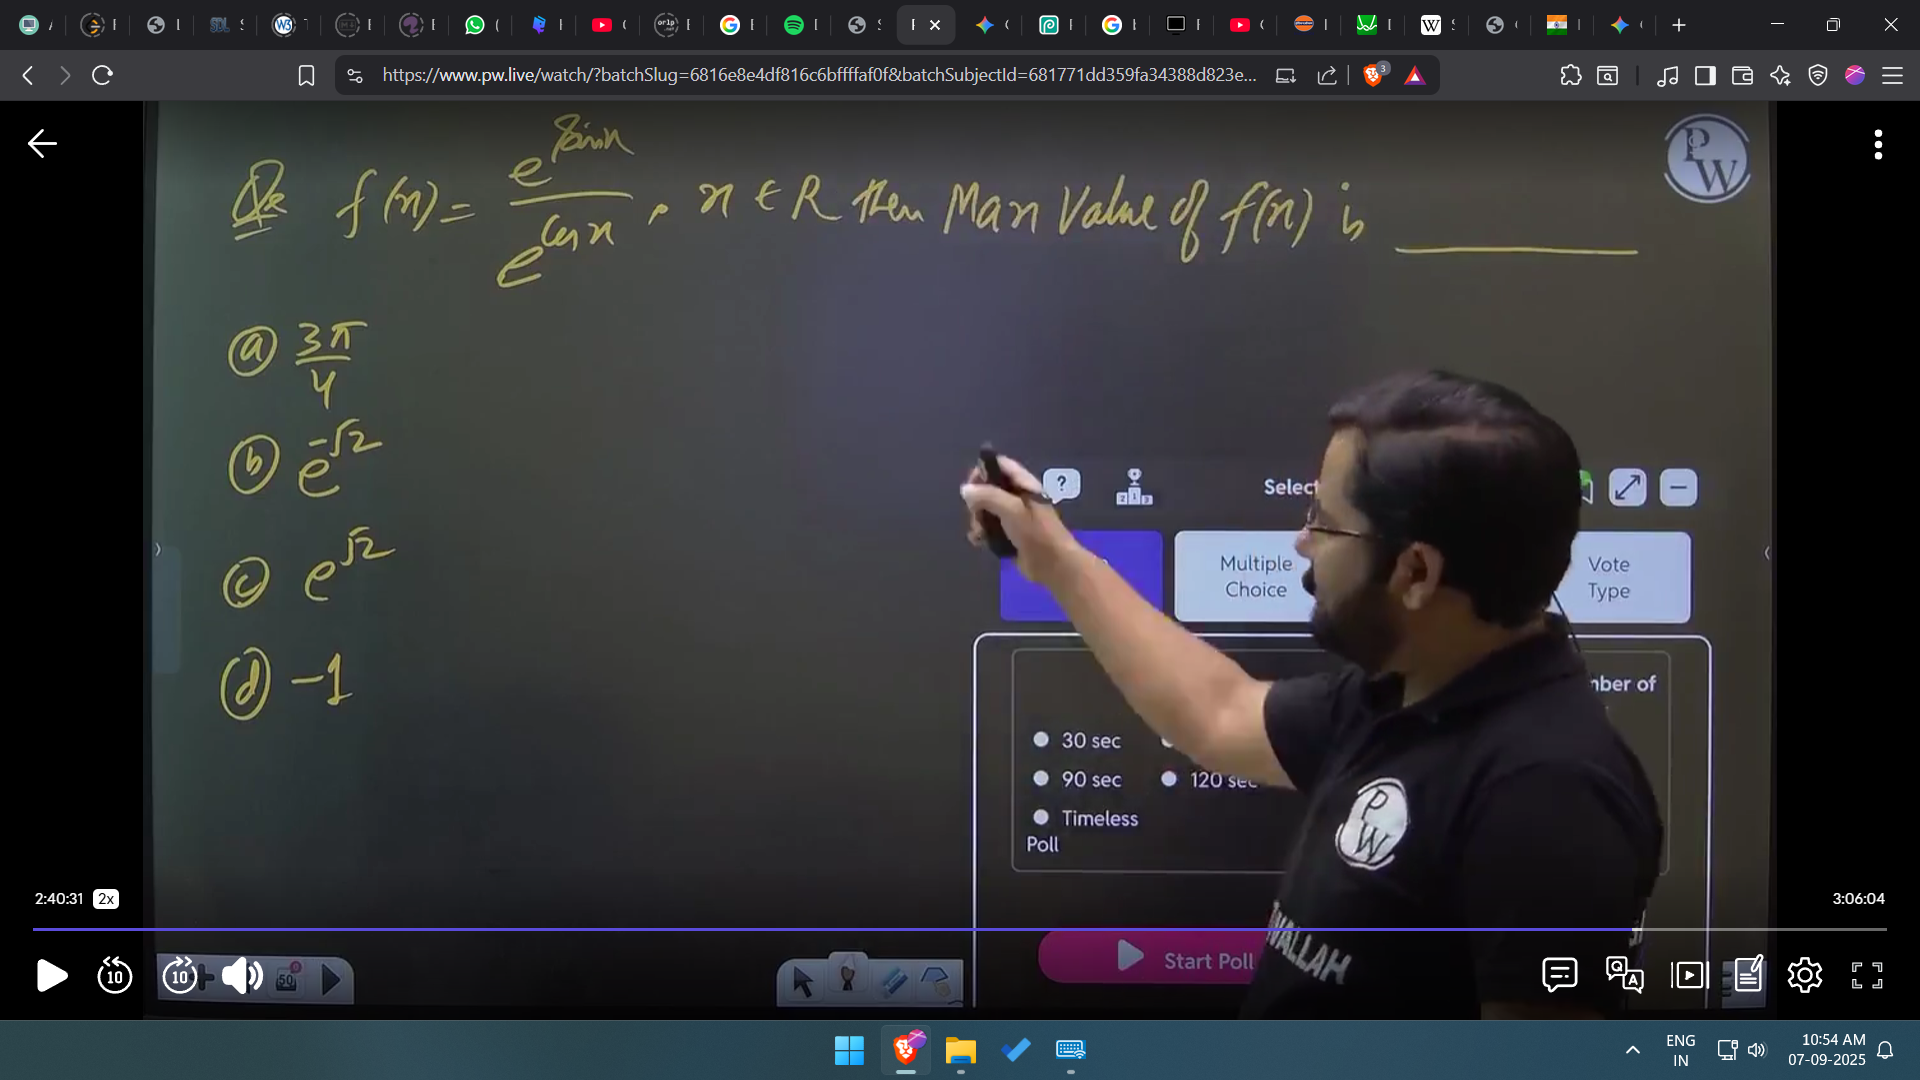 https://www.pw.live/watch/?batchSlug=6816e8e4df816c6bffffaf0f&batchSubjectId=681771dd359fa34388d823e...
3
Qs f(x) = e^sinx / e^cosx , x ∈ R then Max Value of f(x) is ________
PW
ⓐ 3π/4
ⓑ e^-√2
ⓒ e^√2
ⓓ -1
?
Select
Multiple Choice
Vote Type
30 sec
90 sec
120 sec
Timeless
Poll
PW
WALLAH
Start Poll
2:40:31 2x
3:06:04
10
10
50
ENG
IN
10:54 AM
07-09-2025